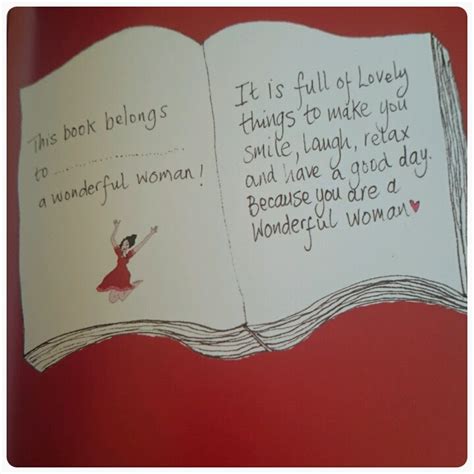 This book belongs
to ........................
a wonderful woman!
It is full of Lovely
things to make you
smile, laugh, relax
and have a good day.
Because you are a
Wonderful Woman